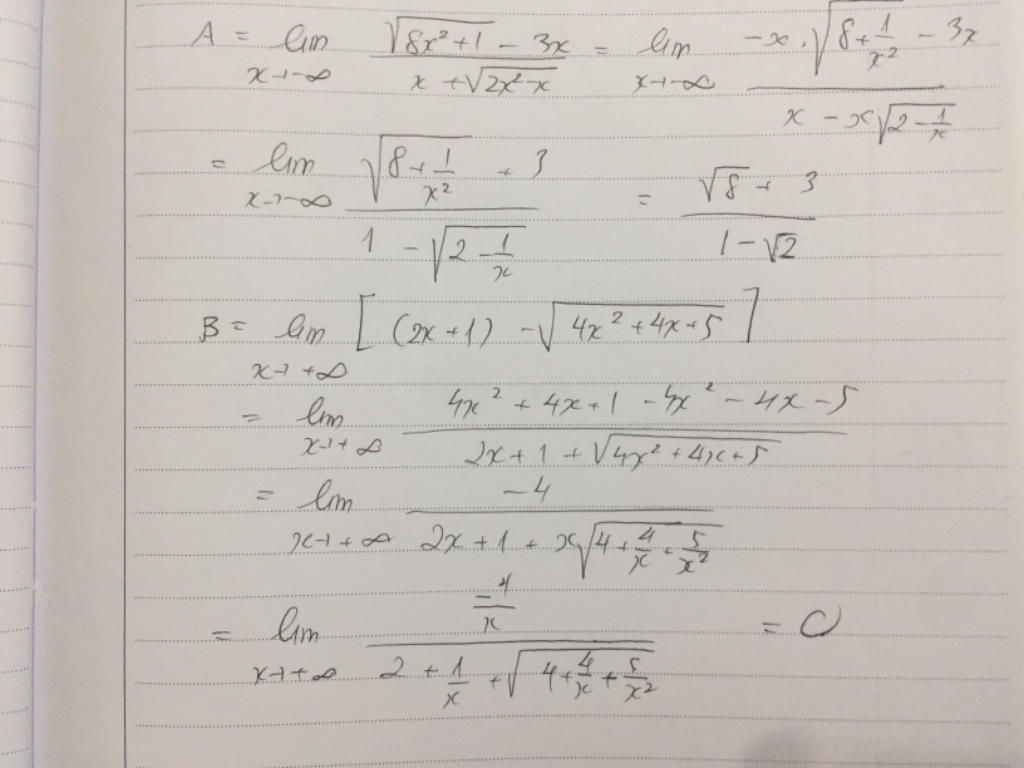 A = lim x→-∞ (√(8x²+1) - 3x)/(x + √(2x²-x)) = lim x→-∞ (-x.√(8+1/x²) - 3x)/(x - x√(2-1/x))
= lim x→-∞ (√(8+1/x²) + 3)/(1 - √(2-1/x)) = (√8 + 3)/(1-√2)
B = lim x→+∞ [(2x+1) - √(4x²+4x+5)]
= lim x→+∞ (4x²+4x+1-4x²-4x-5)/(2x+1+√(4x²+4x+5))
= lim x→+∞ (-4)/(2x+1+x√(4+4/x+5/x²))
= lim x→+∞ (-4/x)/(2+1/x+√(4+4/x+5/x²)) = 0